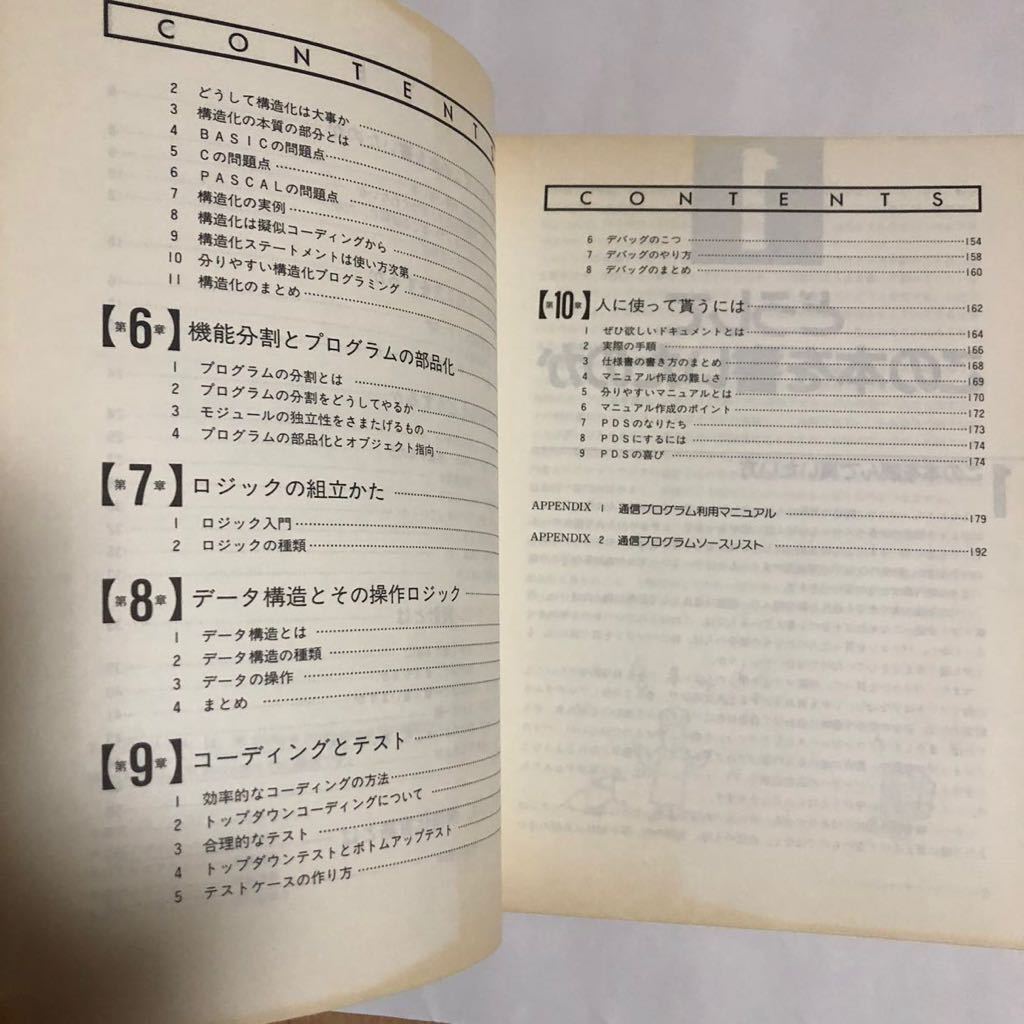 CONTENT
2 どうして構造化は大事か
3 構造化の本質の部分とは
4 BASICの問題点
5 Cの問題点
6 PASCALの問題点
7 構造化の実例
8 構造化は擬似コーディングから
9 構造化ステートメントは使い方次第
10 分りやすい構造化プログラミング
11 構造化のまとめ
【第6章】機能分割とプログラムの部品化
1 プログラムの分割とは
2 プログラムの分割をどうしてやるか
3 モジュールの独立性をさまたげるもの
4 プログラムの部品化とオブジェクト指向
【第7章】ロジックの組立かた
1 ロジック入門
2 ロジックの種類
【第8章】データ構造とその操作ロジック
1 データ構造とは
2 データ構造の種類
3 データの操作
4 まとめ
【第9章】コーディングとテスト
1 効率的なコーディングの方法
2 トップダウンコーディングについて
3 合理的なテスト
4 トップダウンテストとボトムアップテスト
5 テストケースの作り方
CONTENTS
6 デバッグのこつ 154
7 デバッグのやり方 158
8 デバッグのまとめ 160
【第10章】人に使って貰うには 162
1 ぜひ欲しいドキュメントとは 164
2 実際の手順 166
3 仕様書の書き方のまとめ 168
4 マニュアル作成の難しさ 169
5 分りやすいマニュアルとは 170
6 マニュアル作成のポイント 172
7 PDSのなりたち 173
8 PDSにするには 174
9 PDSの喜び 174
APPENDIX 1 通信プログラム利用マニュアル 179
APPENDIX 2 通信プログラムソースリスト 192